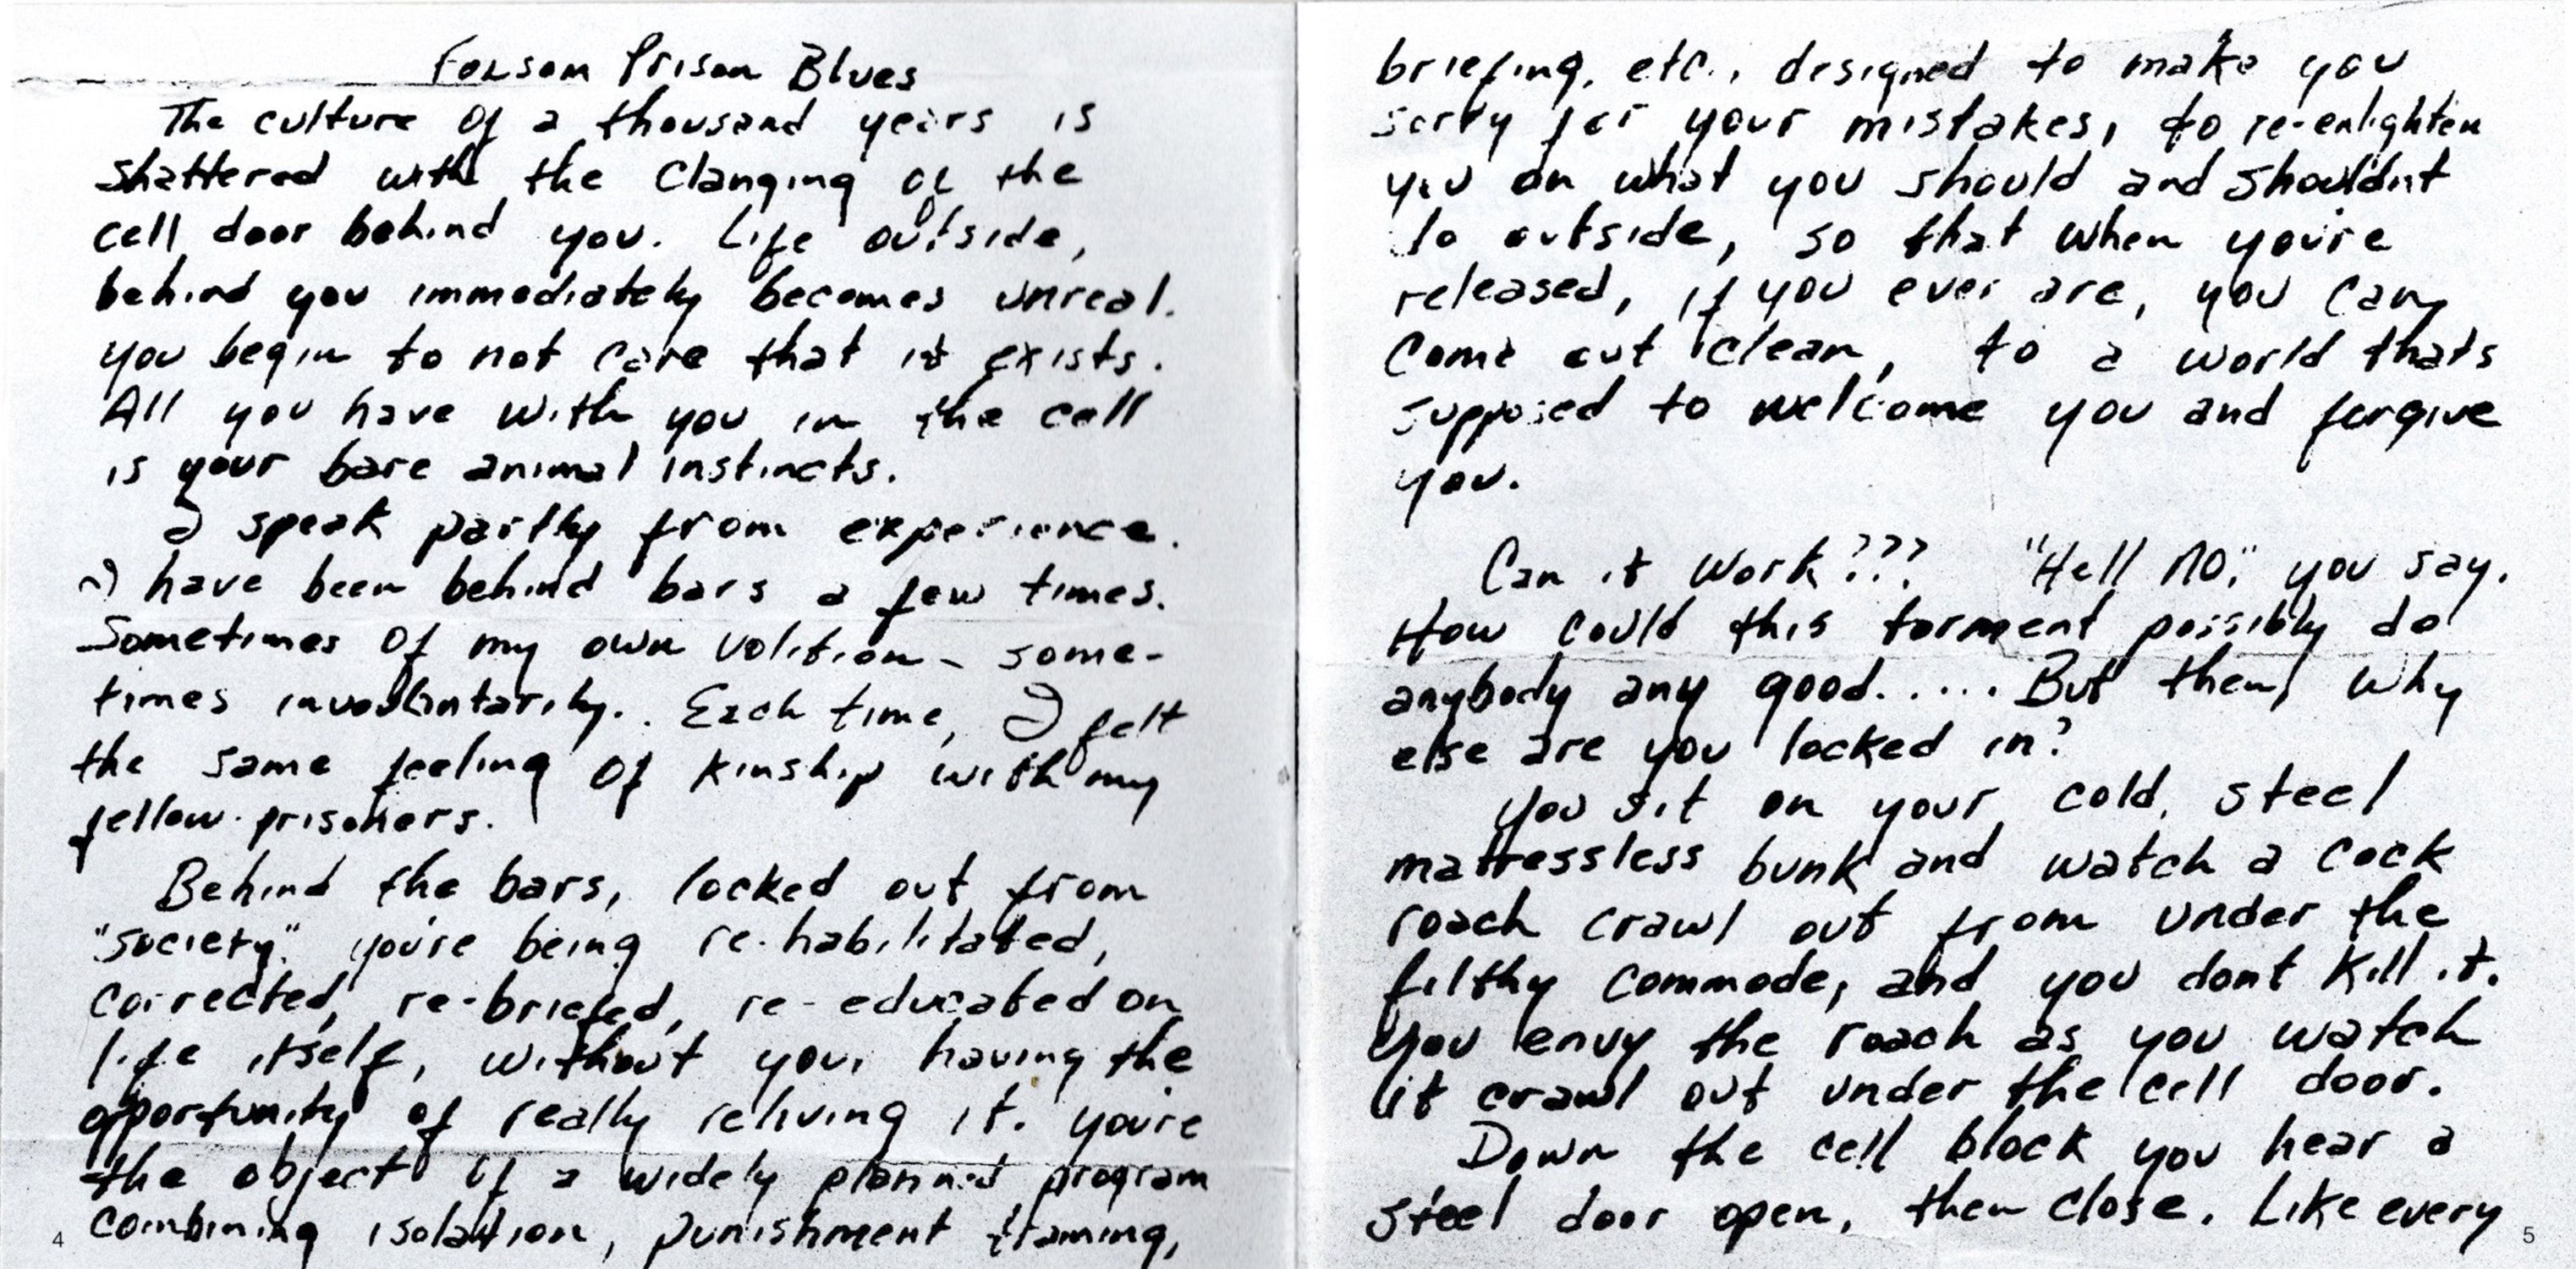 Folsom Prison Blues
The culture of a thousand years is
shattered with the clanging of the
cell door behind you. Life outside,
behind you immediately becomes unreal.
you begin to not care that it exists.
All you have with you in the cell
is your bare animal instincts.
I speak partly from experience.
I have been behind bars a few times.
Sometimes of my own volition - some-
times involuntarily. Each time, I felt
the same feeling of kinship with my
fellow prisoners.
Behind the bars, locked out from
"society" you're being re-habilitated,
corrected, re-briefed, re-educated on
life itself, without your having the
opportunity of really reliving it. you're
the object of a widely planned program
combining isolation, punishment training,
4
briefing, etc., designed to make you
sorry for your mistakes, to re-enlighten
you on what you should and shouldnt
do outside, so that when you're
released, if you ever are, you can
come out clean, to a world thats
supposed to welcome you and forgive
you.
Can it work??? "Hell NO." you say.
How could this torment possibly do
anybody any good..... But then, why
else are you locked in?
You sit on your cold, steel
mattressless bunk and watch a cock
roach crawl out from under the
filthy commode, and you dont kill it.
You envy the roach as you watch
it crawl out under the cell door.
Down the cell block you hear a
steel door open, then close. Like every
5